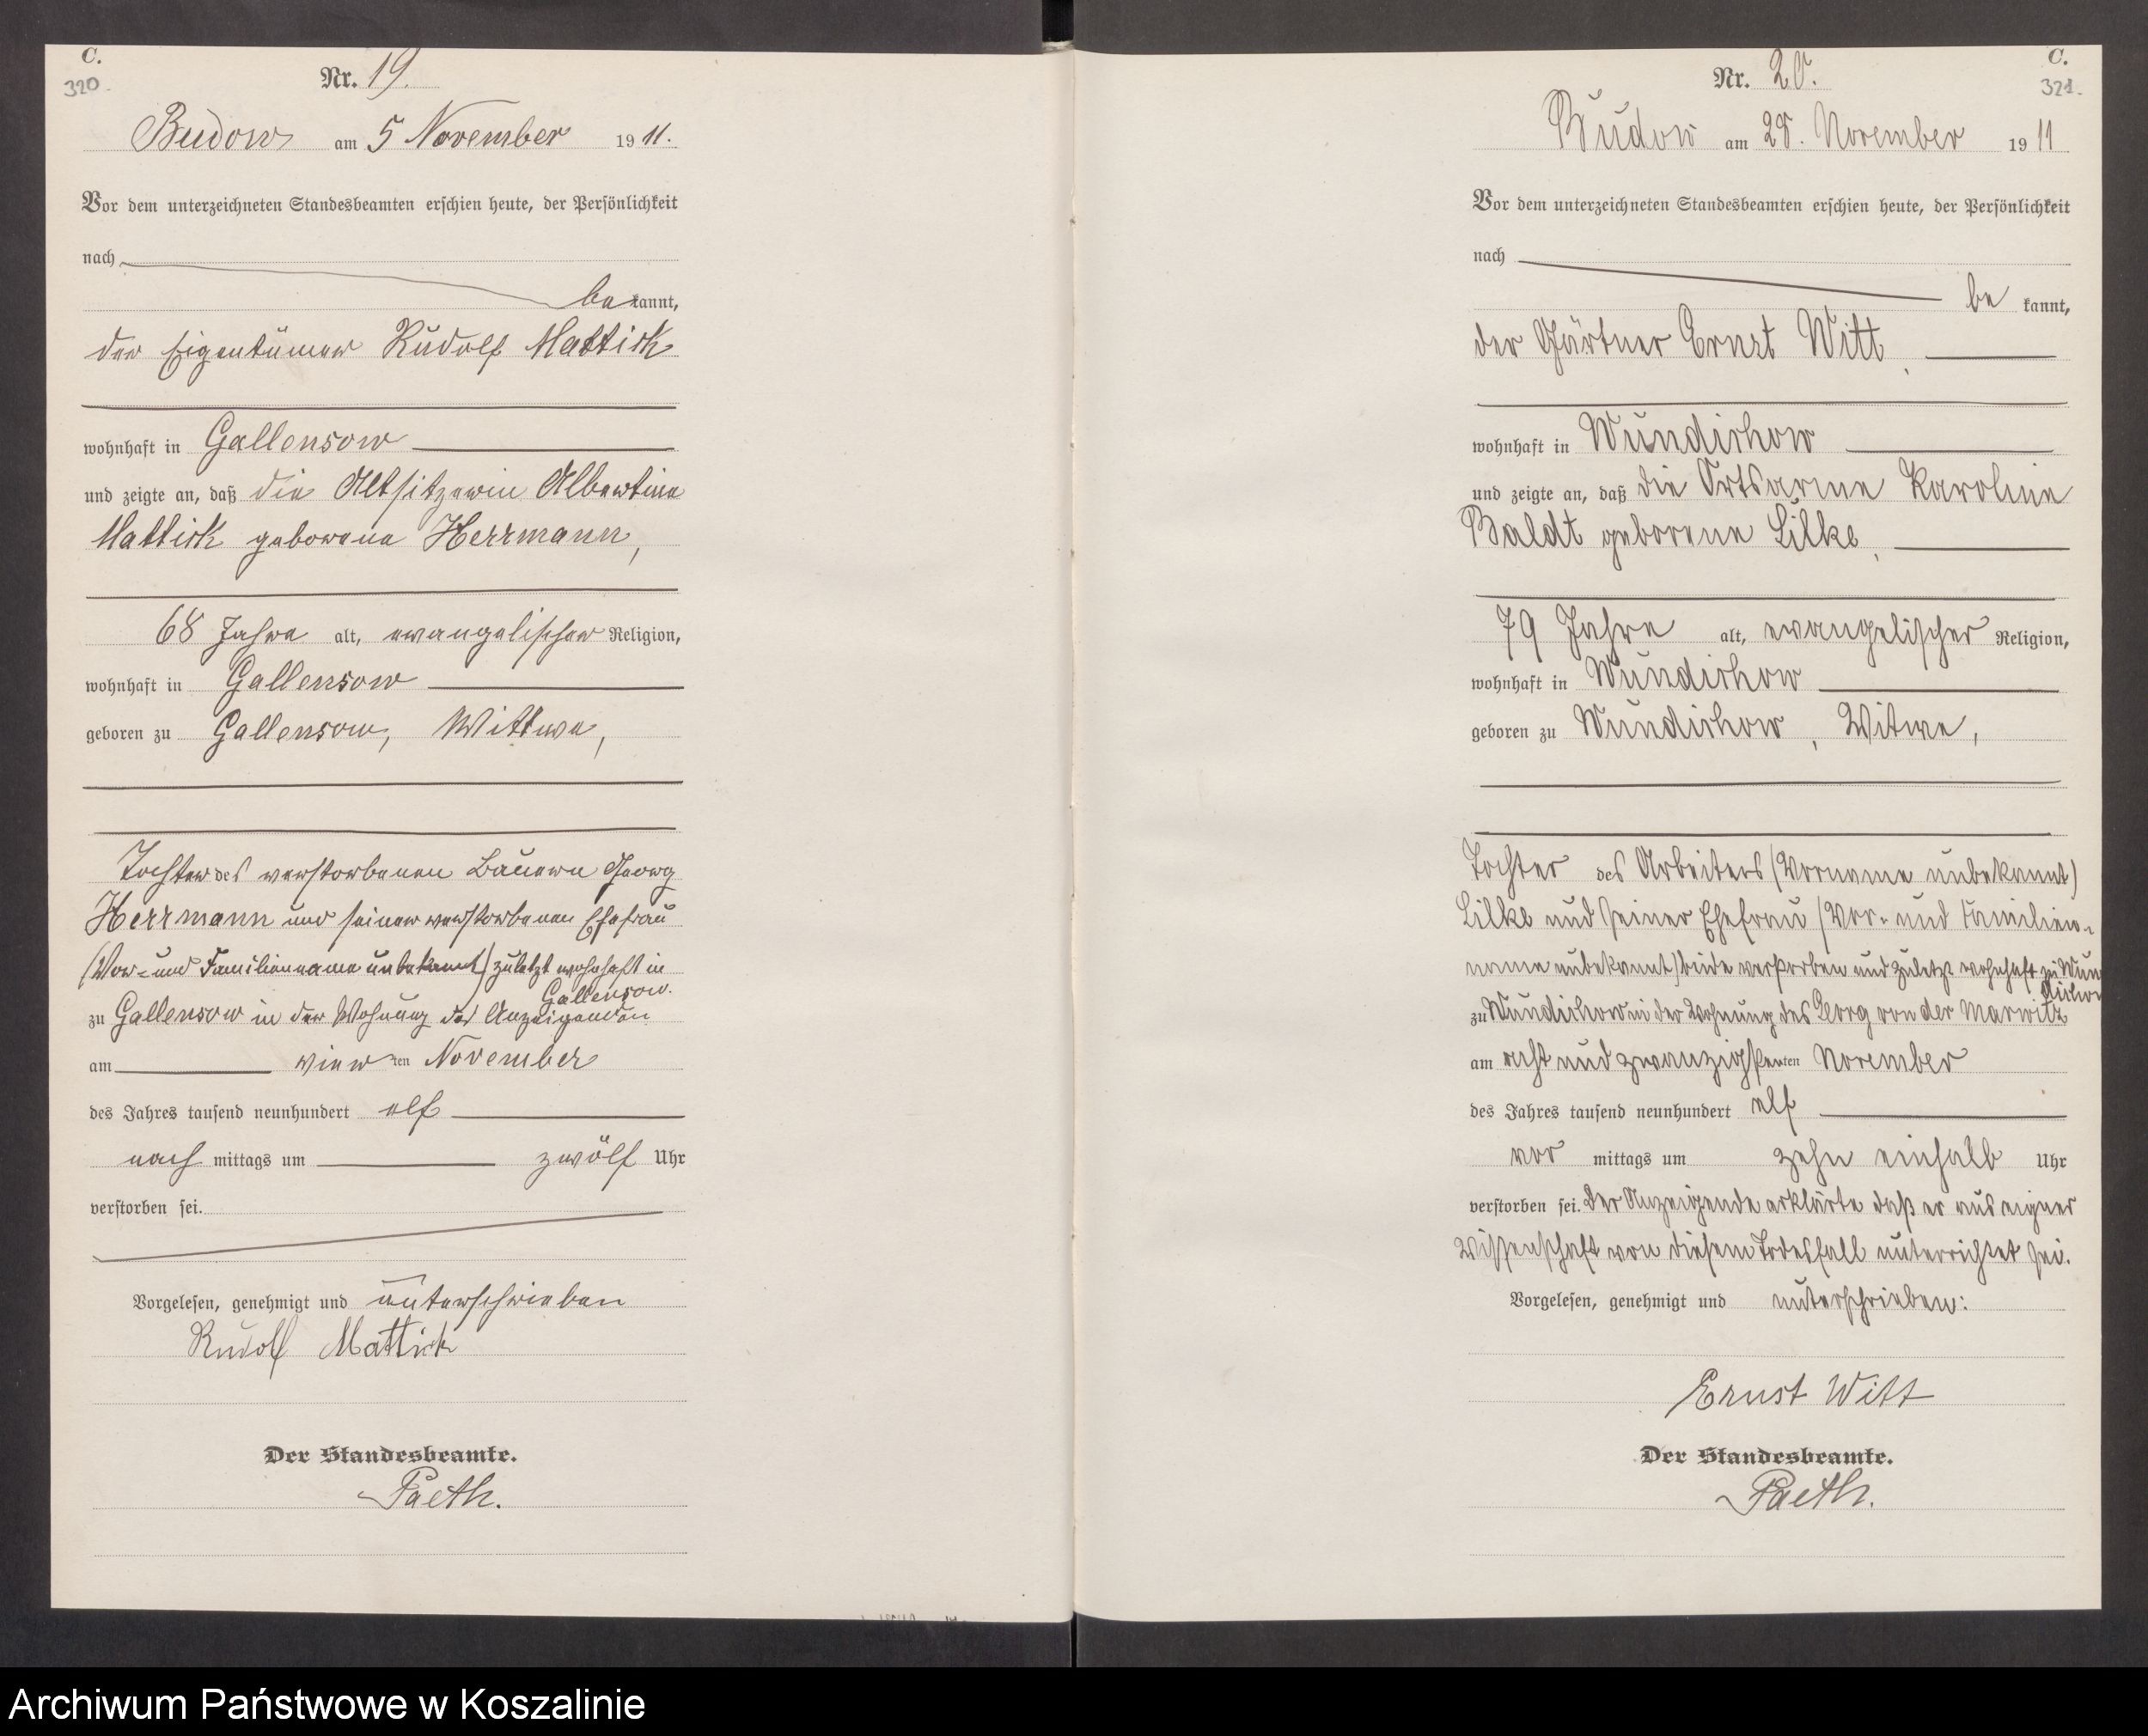 C.
320.
Nr. 19.
Budow am 5 November 1911.
Vor dem unterzeichneten Standesbeamten erschien heute, der Persönlichkeit
nach
bekannt,
der Eigentümer Rudolf Mattick
wohnhaft in Gallensow
und zeigte an, daß die Altsitzerin Albertine
Mattick geborene Herrmann,
68 Jahre alt, evangelischer Religion,
wohnhaft in Gallensow
geboren zu Gallensow, Wittwe,
Tochter des verstorbenen Bauern Georg
Herrmann und seiner verstorbenen Ehefrau
(Vor- und Familienname unbekannt) zuletzt wohnhaft in
Gallensow.
zu Gallensow in der Wohnung des Anzeigenden
am vierten November
des Jahres tausend neunhundert elf
nach mittags um zwölf Uhr
verstorben sei.
Vorgelesen, genehmigt und unterschrieben
Rudolf Mattick
Der Standesbeamte.
Paeth.
C.
321.
Nr. 20.
Budow am 28. November 1911
Vor dem unterzeichneten Standesbeamten erschien heute, der Persönlichkeit
nach
be kannt,
der Gärtner Ernst Witt,
wohnhaft in Wundichow
und zeigte an, daß die Ortsarme Karoline
Baldt geborene Lilke,
79 Jahre alt, evangelischer Religion,
wohnhaft in Wundichow
geboren zu Wundichow, Witwe,
Tochter des Arbeiters (Vorname unbekannt)
Lilke und seiner Ehefrau (Vor- und Familien-
name unbekannt) beide verstorben und zuletzt wohnhaft zu Wun
dichow
zu Wundichow in der Wohnung des Georg von der Marwitz
am acht und zwanzigsten ten November
des Jahres tausend neunhundert elf
vor mittags um zehn einhalb Uhr
verstorben sei. Der Anzeigende erklärte daß er aus eigner
Wissenschaft von diesem Todesfall unterrichtet sei.
Vorgelesen, genehmigt und unterschrieben:
Ernst Witt
Der Standesbeamte.
Paeth.
Archiwum Państwowe w Koszalinie